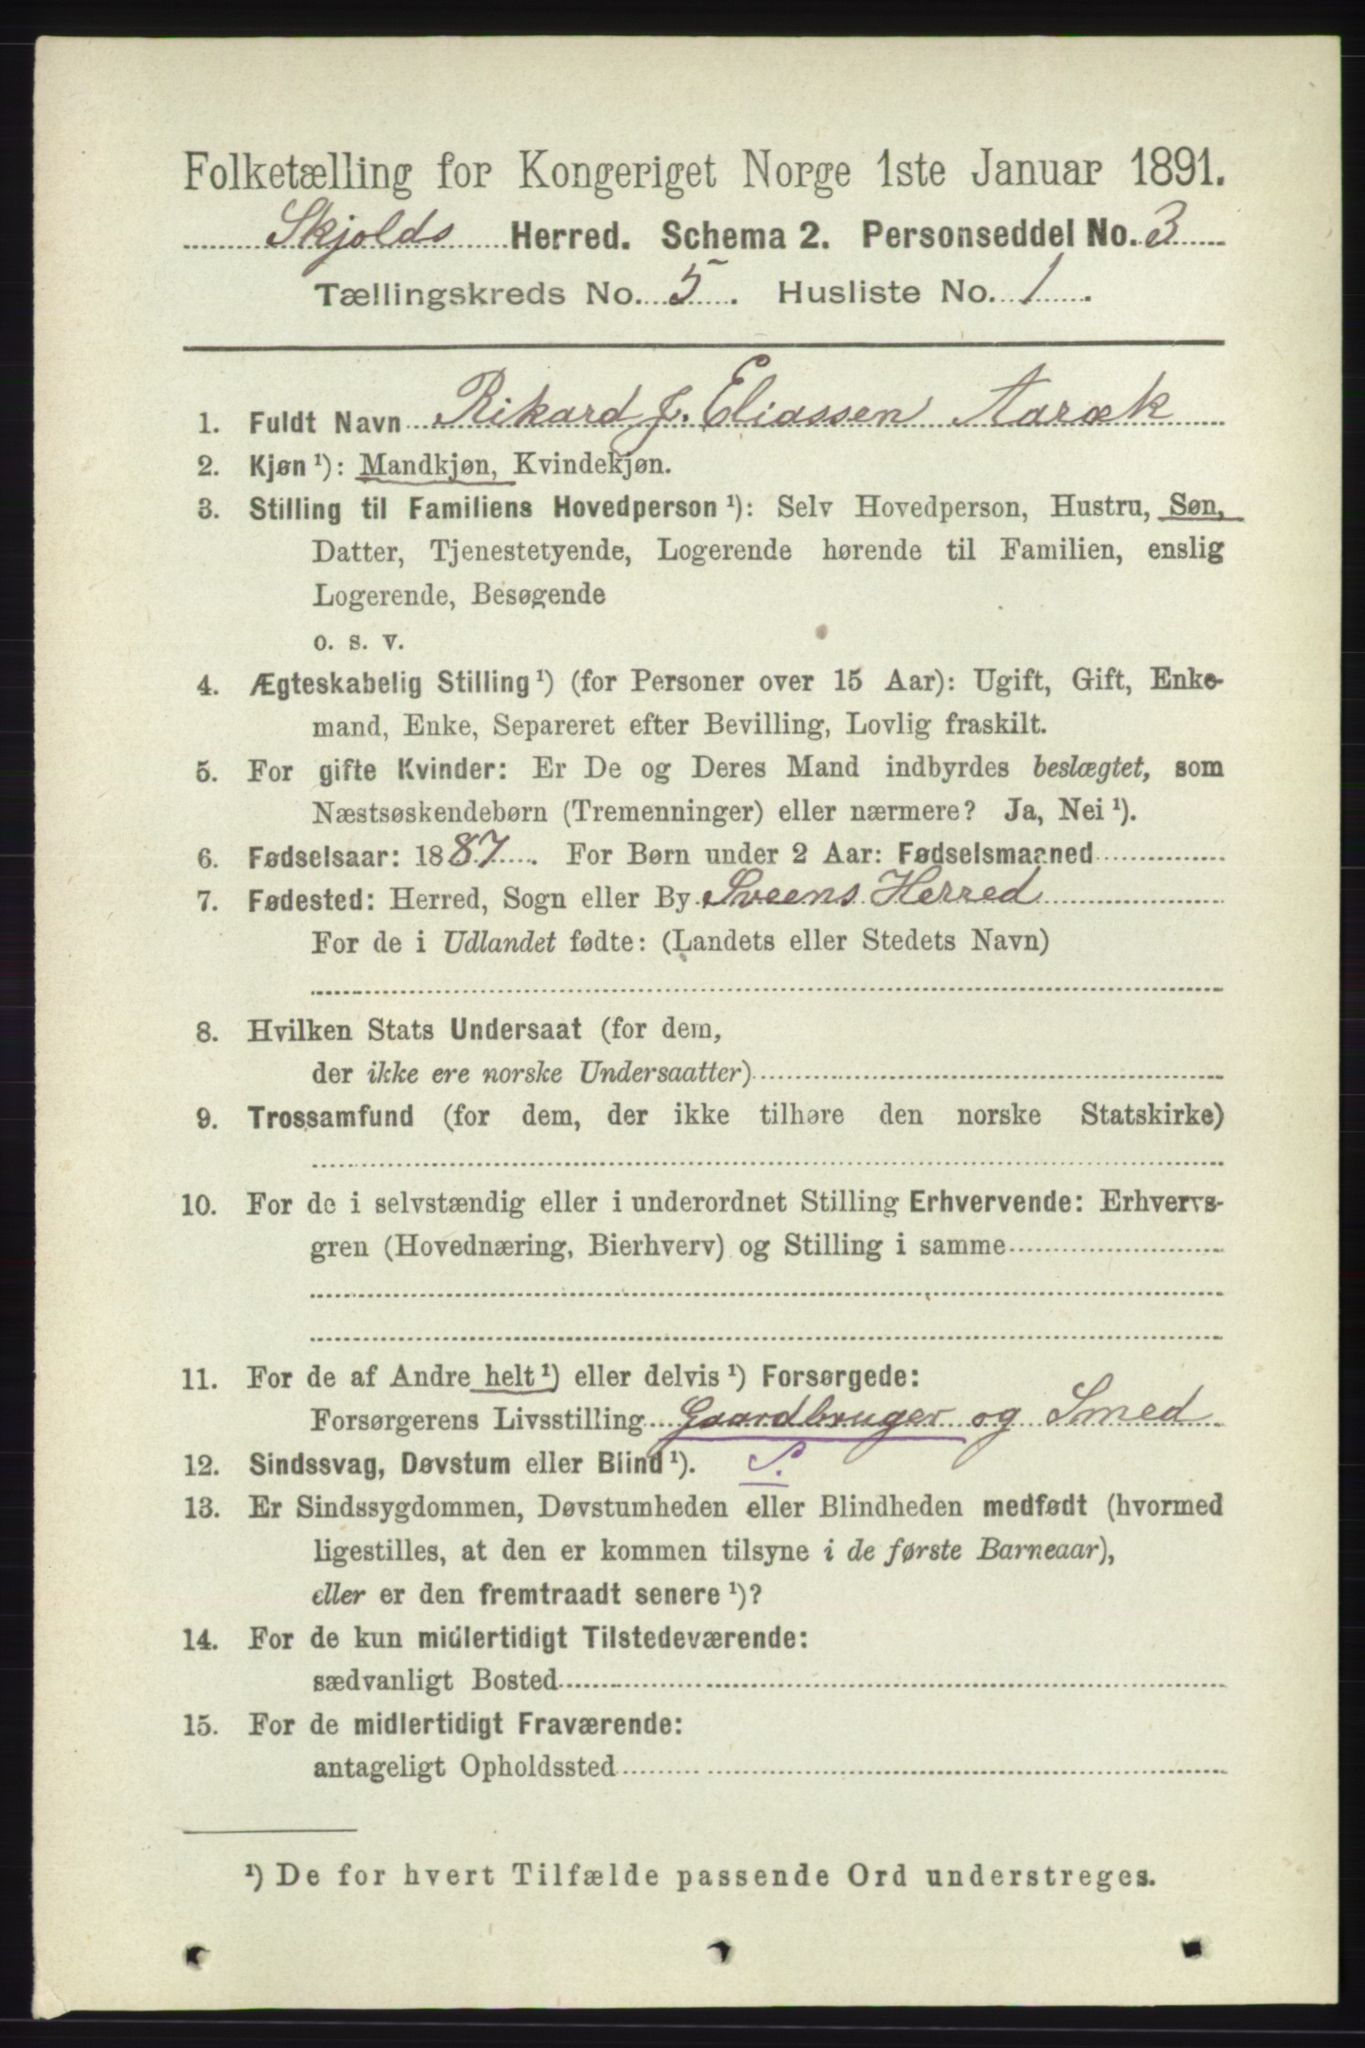 Folketælling for Kongeriget Norge 1ste Januar 1891.
Skjolds Herred. Schema 2. Personseddel No. 3
Tællingskreds No. 5. Husliste No. 1.
1. Fuldt Navn Rikard J. Eliassen Aaræk
2. Kjøn ¹): Mandkjøn, Kvindekjøn.
3. Stilling til Familiens Hovedperson ¹): Selv Hovedperson, Hustru, Søn,
Datter, Tjenestetyende, Logerende hørende til Familien, enslig
Logerende, Besøgende
o. s. v.
4. Ægteskabelig Stilling ¹) (for Personer over 15 Aar): Ugift, Gift, Enke-
mand, Enke, Separeret efter Bevilling, Lovlig fraskilt.
5. For gifte Kvinder: Er De og Deres Mand indbyrdes beslægtet, som
Næstsøskendebørn (Tremenninger) eller nærmere? Ja, Nei ¹).
6. Fødselsaar: 1887. For Børn under 2 Aar: Fødselsmaaned
7. Fødested: Herred, Sogn eller By Sveens Herred
For de i Udlandet fødte: (Landets eller Stedets Navn)
8. Hvilken Stats Undersaat (for dem,
der ikke ere norske Undersaatter)
9. Trossamfund (for dem, der ikke tilhøre den norske Statskirke)
10. For de i selvstændig eller i underordnet Stilling Erhvervende: Erhvervs-
gren (Hovednæring, Bierhverv) og Stilling i samme
11. For de af Andre helt ¹) eller delvis ¹) Forsørgede:
Forsørgerens Livsstilling Gaardbruger og Smed
12. Sindssvag, Døvstum eller Blind ¹). S.
13. Er Sindssygdommen, Døvstumheden eller Blindheden medfødt (hvormed
ligestilles, at den er kommen tilsyne i de første Barneaar),
eller er den fremtraadt senere ¹)?
14. For de kun midlertidigt Tilstedeværende:
sædvanligt Bosted
15. For de midlertidigt Fraværende:
antageligt Opholdssted
¹) De for hvert Tilfælde passende Ord understreges.